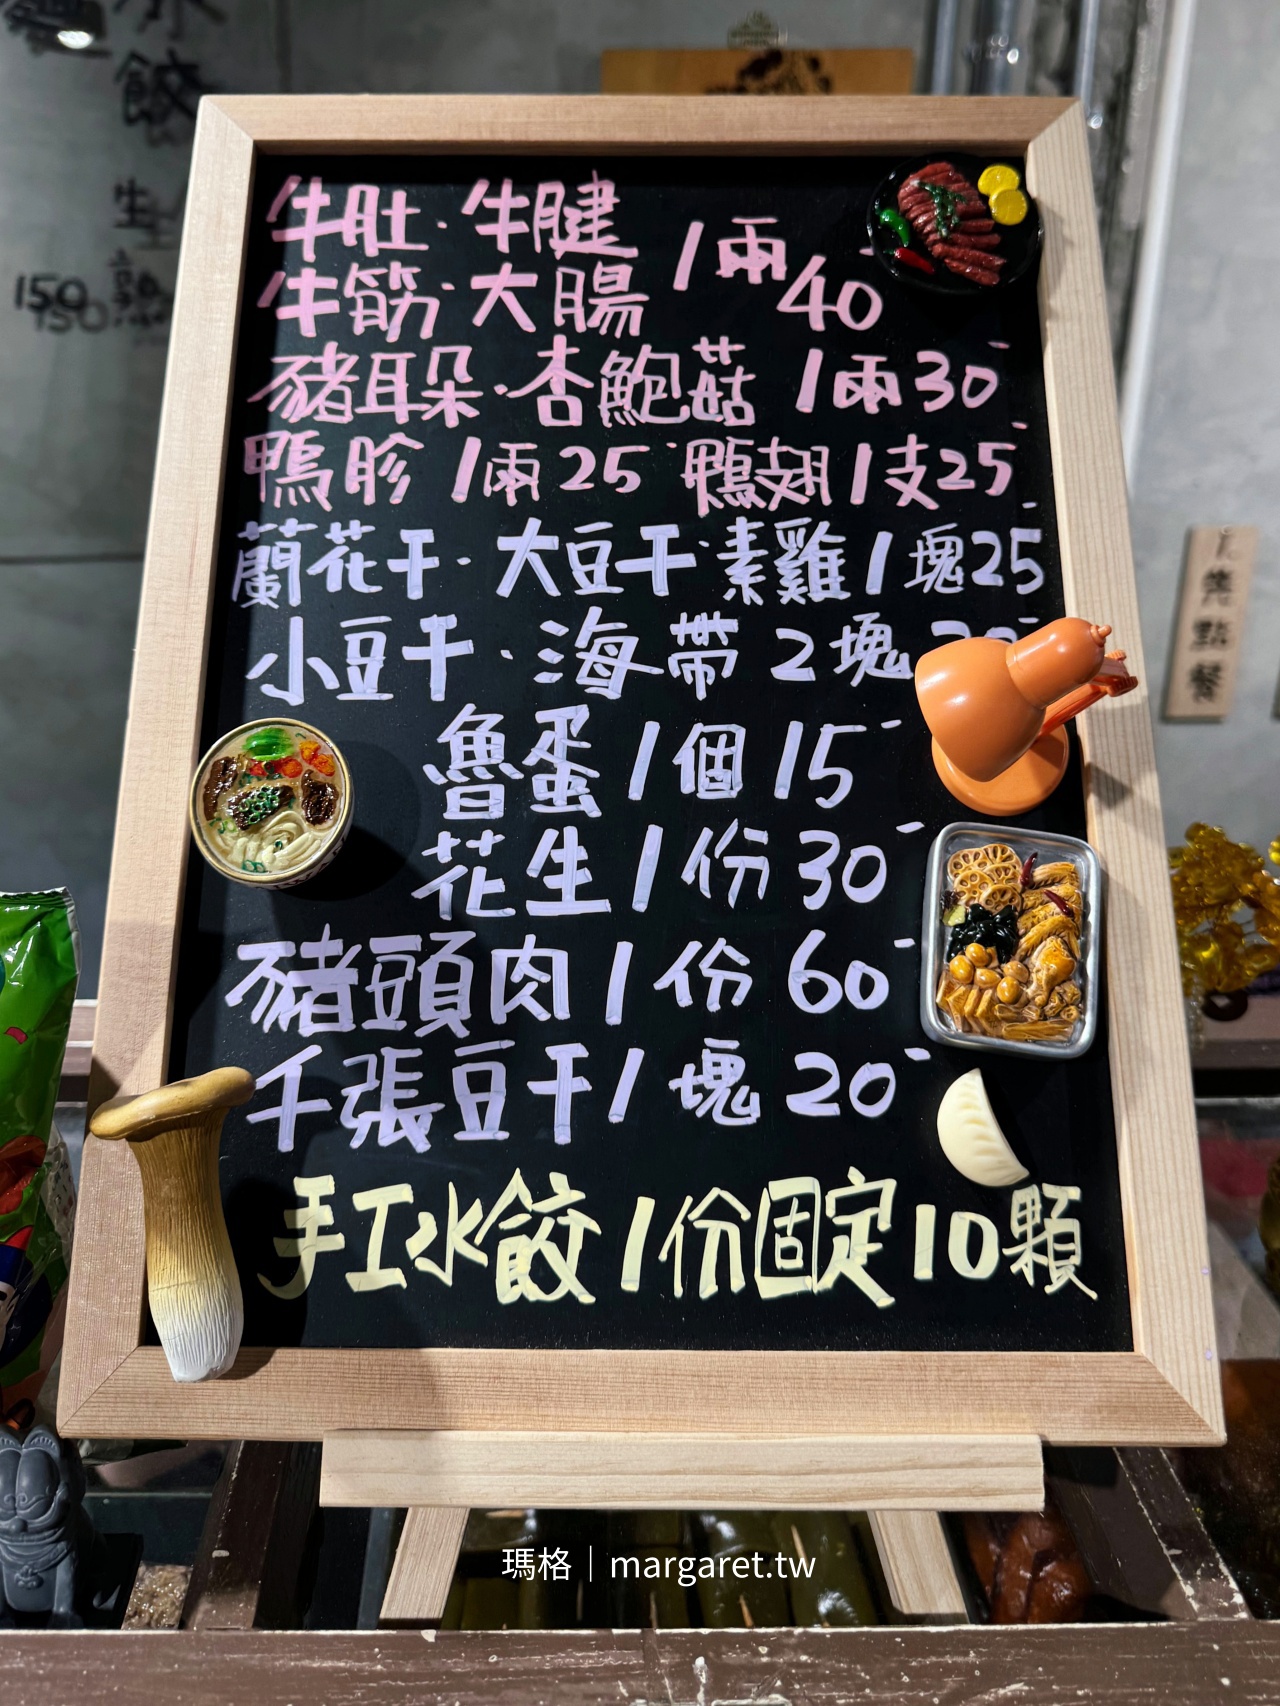 水餃
生
熟
150
150
牛肚·牛腱
牛筋·大腸 1兩40-
豬耳朵·杏鮑菇 1兩30-
鴨胗1兩25- 鴨翅1支25-
蘭花干·大豆干·素雞1塊25-
小豆干·海帶2塊
魯蛋1個15-
花生1份30-
豬頭肉1份60-
千張豆干1塊20-
手工水餃1份固定10顆
點餐
瑪格｜margaret.tw